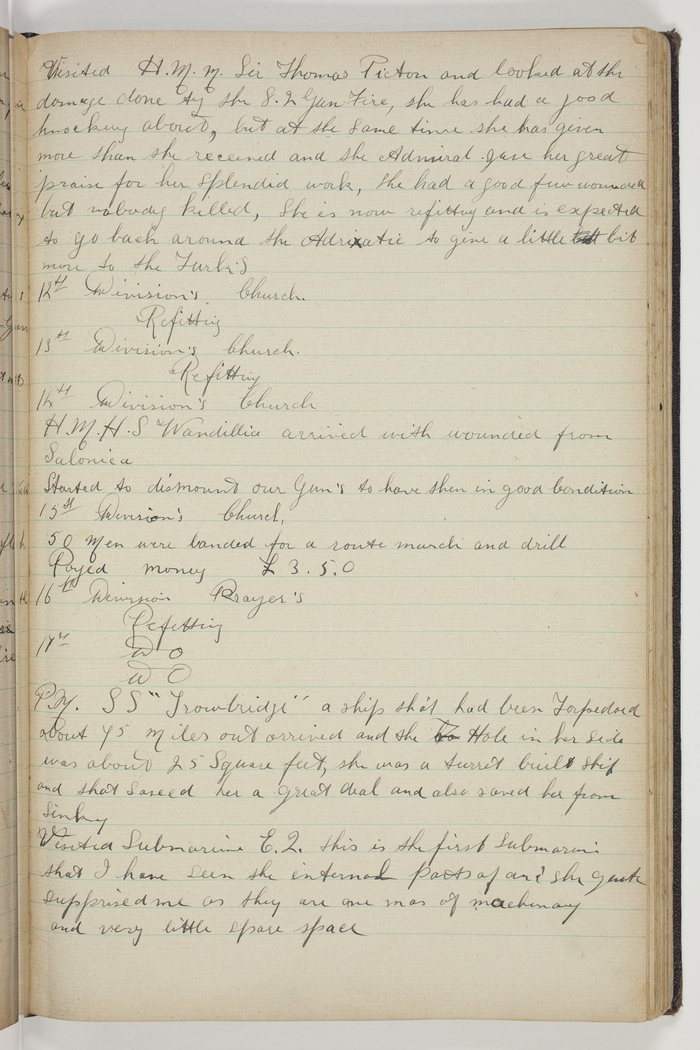 Visited H.M.M. Sir Thomas Picton and looked at the
damage done by the 8.2 Gun Fire, she has had a good
knocking about, but at the same time she has given
more than she received and the Admiral gave her great
praise for her splendid work, she had a good few wounded
but nobody killed, She is now refitting and is expected
to go back around the Adriatic to give a little bit
more to the Turk's
12th Division's Church.
Refitting
13th Division's Church.
Refitting
14th Division's Church
H.M.H.S "Wandillia arrived with wounded from
Salonica
Started to dismound our Gun's to have them in good Condition
15st Division's Church,
50 Men were landed for a route march and drill
Payed money £ 3.5.0
16th Division Prayer's
Refitting
17th D O
D O
P.M. S S "Trowbridge" a ship that had been Torpedoed
about 75 Miles out arrived and the Hole in her side
was about 25 Square feet, she was a turret built ship
and that saveed her a great deal and also saved her from
Sinking
Visited Submarine E.2. this is the first Submarine
that I have seen the internal parts of and she quite
supprised me as they are one mas of machenary
and very little spare space